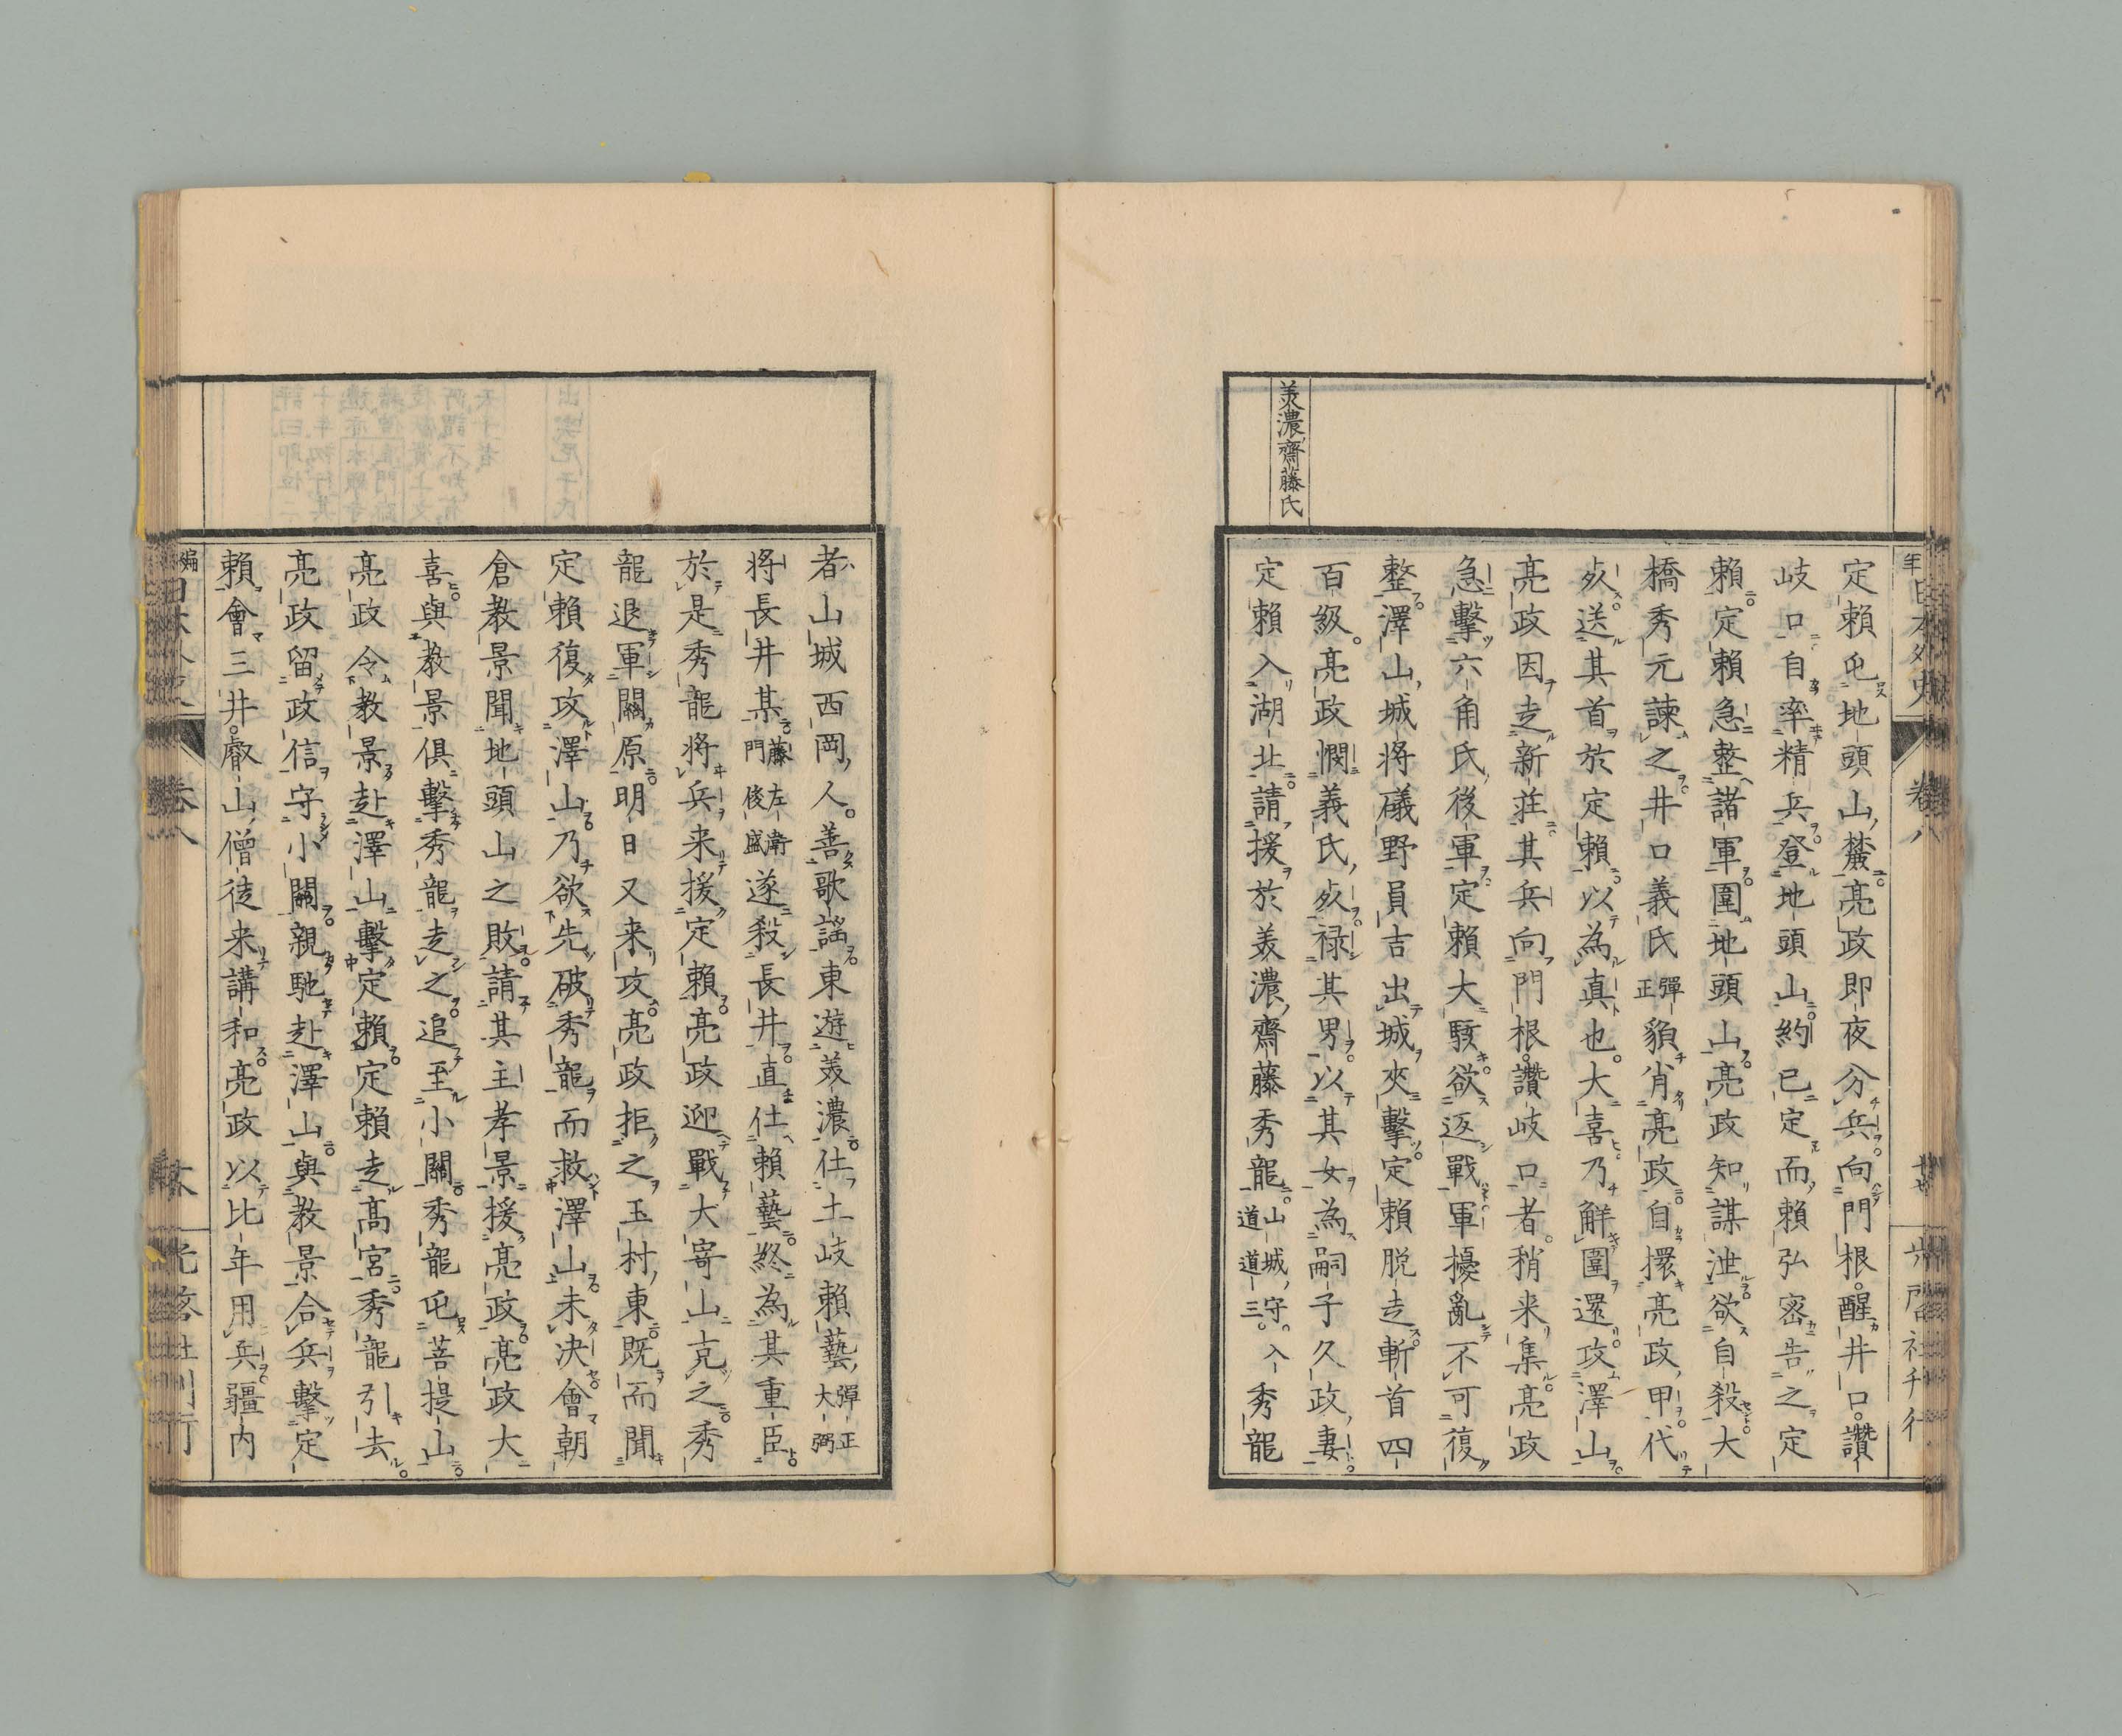 美濃齋藤氏
定賴屯地頭山麓亮政即夜分兵向門根醒井口讚
岐口自率精兵登地頭山約已定而賴弘密告之定
賴定賴急整諸軍圍地頭山亮政知謀泄欲自殺大
橋秀元諫之井口義氏彈正貌肖亮政自擐亮政甲代
死送其首於定賴以為真也大喜乃解圍還攻澤山
亮政因走新莊其兵向門根讚岐口者稍来集亮政
急擊六角氏後軍定賴大駭欲返戰軍擾亂不可復
整澤山城將礒野員吉出城夾擊定賴脱走斬首四
百級亮政憫義氏死禄其男以其女為嗣子久政妻
定賴入湖北請援於美濃齋藤秀龍山城守入道道三秀龍
者山城西岡人善歌謡東遊美濃仕土岐賴藝彈正大弼
將長井某藤左衛門俊盛遂殺長井直仕賴藝終為其重臣
於是秀龍將兵来援定賴亮政迎戰大寄山克之秀
龍退軍關原明日又来攻亮政拒之玉村東既而聞
定賴復攻澤山乃欲先破秀龍而救澤山未決會朝
倉教景聞地頭山之敗請其主孝景援亮政亮政大
喜與教景俱擊秀龍走之追至小關秀龍屯菩提山
亮政令教景赴澤山擊定賴定賴走高宮秀龍引去
亮政留政信守小關親馳赴澤山與教景合兵擊定
賴會三井叡山僧徒来講和亮政以比年用兵疆内
卷八